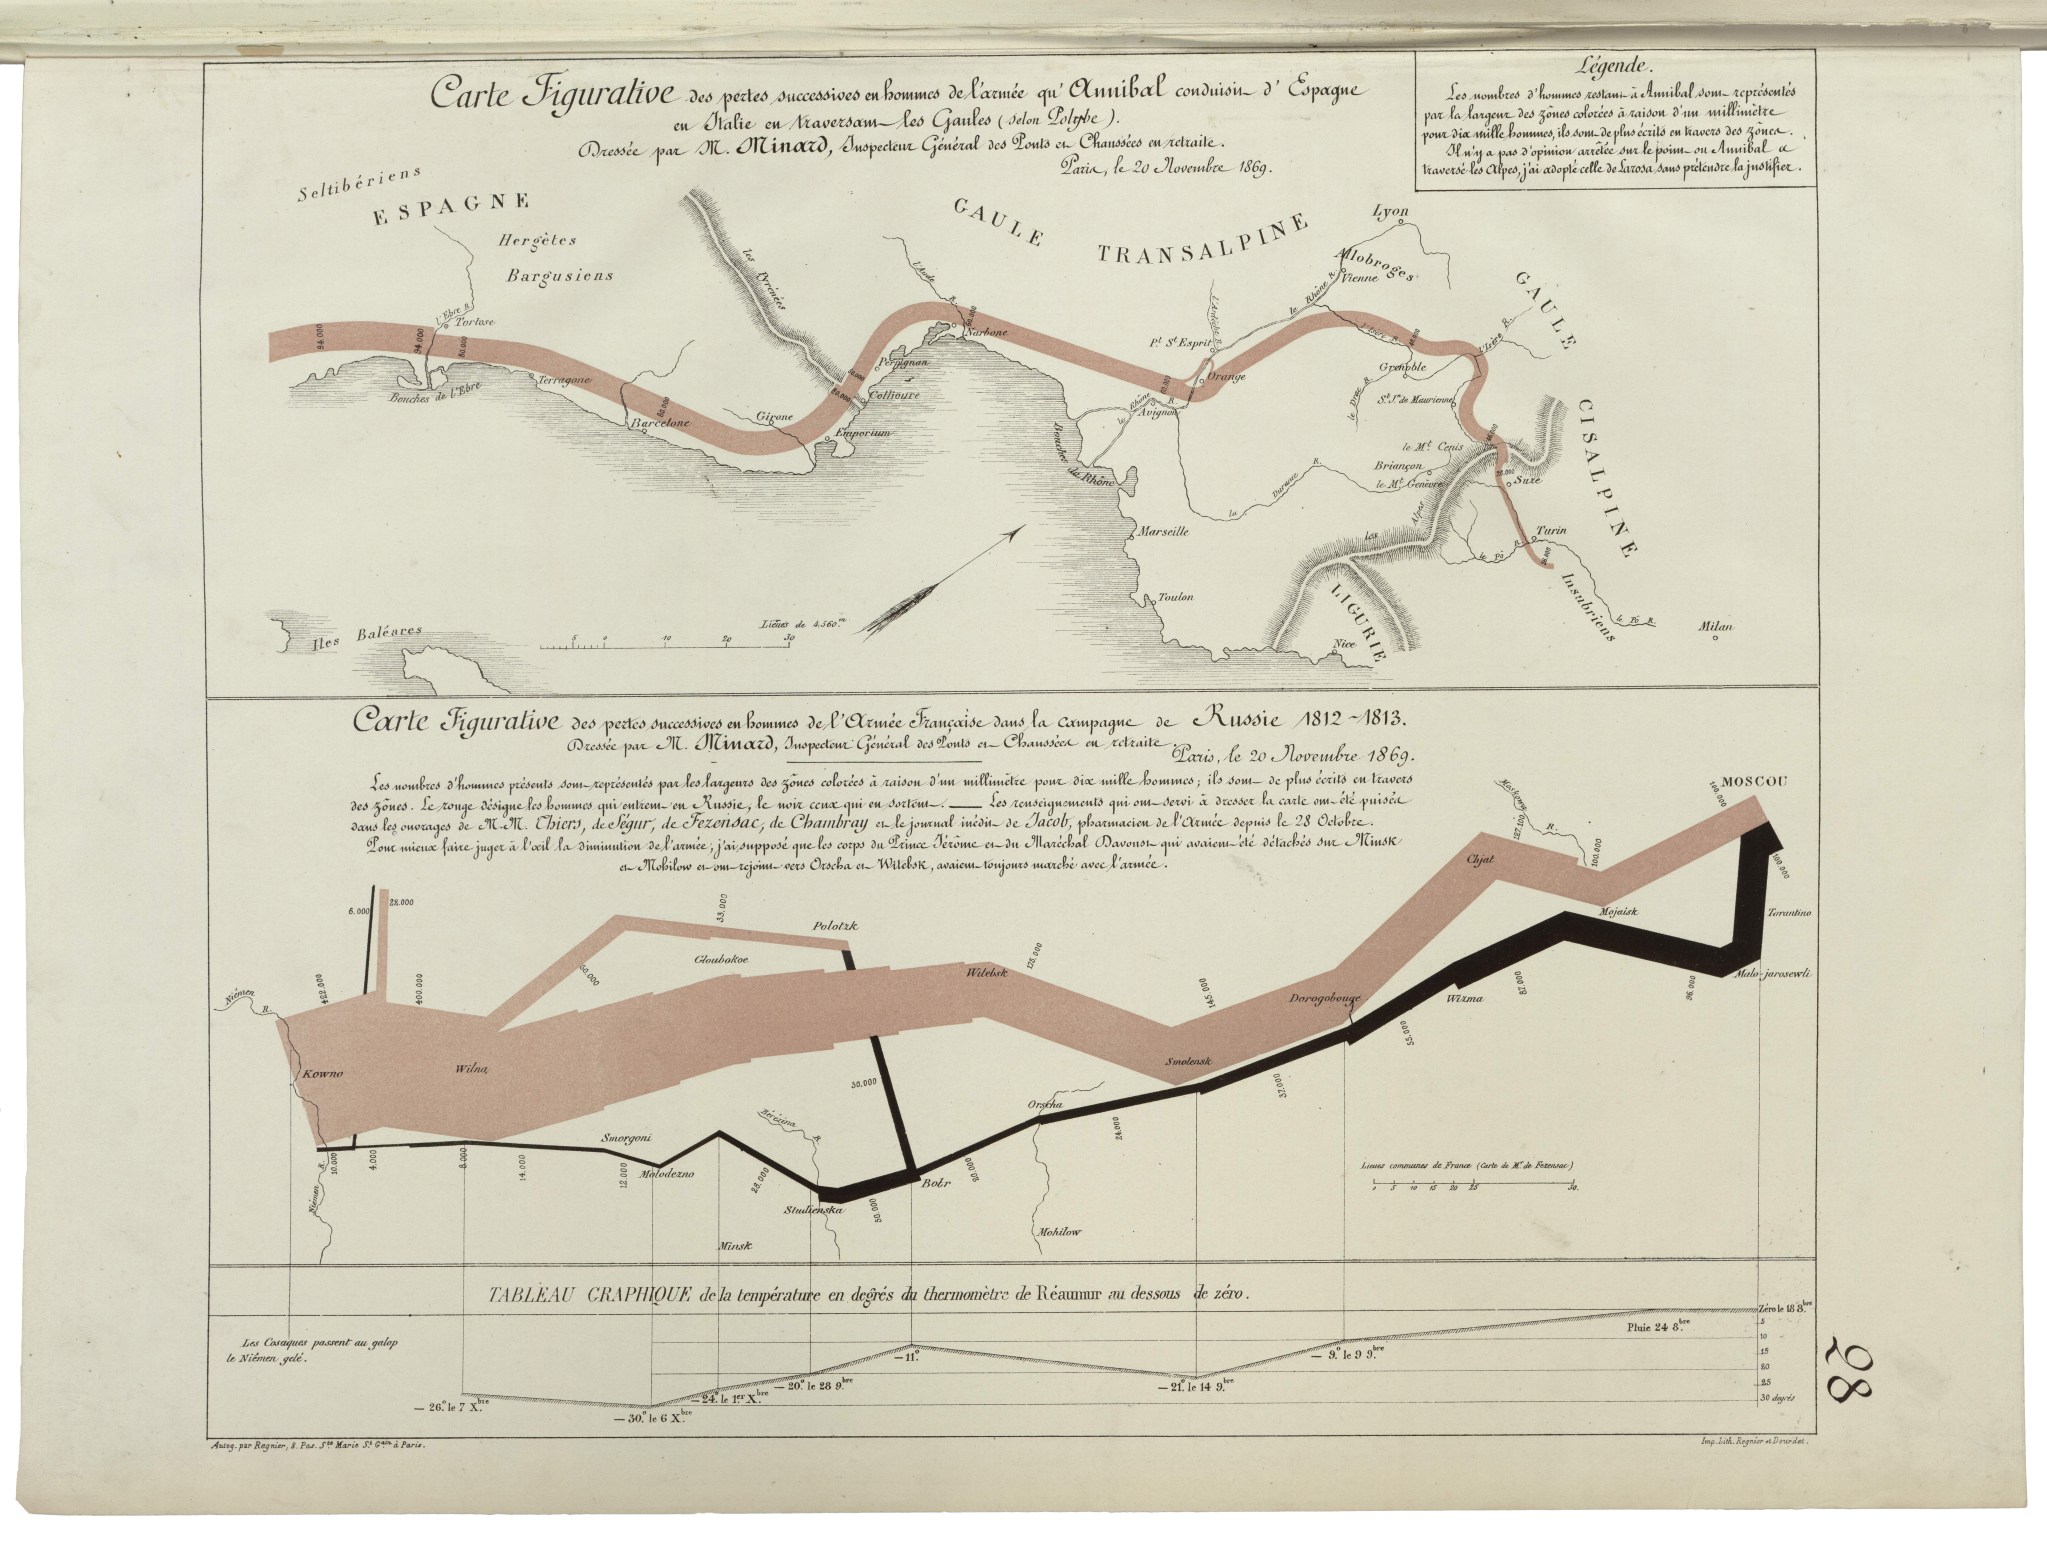 Carte Figurative des pertes successives en hommes de l'armée qu'Annibal conduisit d'Espagne
en Italie en traversant les Gaules (selon Polybe).
Dressée par M. Minard, Inspecteur Général des Ponts et Chaussées en retraite.
Paris, le 20 Novembre 1869.
Légende.
Les nombres d'hommes restant à Annibal sont représentés
par la largeur des zônes colorées à raison d'un millimètre
pour dix mille hommes, ils sont de plus écrits en travers des zônes.
Il n'y a pas d'opinion arrêtée sur le point ou Annibal a
traversé les Alpes, j'ai adopté celle de Larosa sans prétendre la justifier.
Seltibériens
ESPAGNE
Hergètes
Bargusiens
les Pyrénées
GAULE TRANSALPINE
Lyon
Allobroges
Vienne
GAULE CISALPINE
l'Aude R.
l'Ardèche R.
le Rhône R.
l'Ebre R.
Tortose
94.000
94.000
Bouches de l'Ebre
Terragone
Barcelone
Girone
Emporium
Collioure
Perpignan
Narbone
Pt. St Esprit
Orange
Avignon
le Rhône R.
l'Isère R.
l'Isère R.
Grenoble
le Drac R.
St. Jn de Maurienne
le Mt. Cenis
Briançon
le Mt Genèvre
Suze
Bouches du Rhône
la Durance R.
les Alpes
Marseille
Turin
le Pô R.
Toulon
LIGURIE
Nice
Insubriens
le Pô R.
Milan
Iles Baléares
Lieues de 4.560.m
5 0 10 20 30
Carte Figurative des pertes successives en hommes de l'Armée Française dans la campagne de Russie 1812-1813.
Dressée par M. Minard, Inspecteur Général des Ponts et Chaussées en retraite.
Paris, le 20 Novembre 1869.
Les nombres d'hommes présents sont représentés par les largeurs des zônes colorées à raison d'un millimètre pour dix mille hommes; ils sont de plus écrits en travers
des zônes. Le rouge désigne les hommes qui entrent en Russie, le noir ceux qui en sortent. Les renseignements qui ont servi à dresser la carte ont été puisés
dans les ouvrages de M.M. Thiers, de Ségur, de Fezensac, de Chambray et le journal inédit de Jacob, pharmacien de l'Armée depuis le 28 Octobre.
Pour mieux faire juger à l'œil la diminution de l'armée, j'ai supposé que les corps du Prince Jérôme et du Maréchal Davoust qui avaient été détachés sur Minsk
et Mohilow et ont rejoint vers Orscha et Witebsk, avaient toujours marché avec l'armée.
MOSCOU
100.000
100.000
Moskowa R.
127.100
100.000
Chjat
Mojaisk
Tarantino
Malo-jarosewli
6.000
22.000
60.000
33.000
Polotzk
Gloubokoe
Witebsk
175.000
145.000
Dorogobouge
Wizma
87.000
96.000
55.000
Niémen R.
422.000
400.000
Kowno
Wilna
Smolensk
37.000
30.000
Orscha
24.000
Bérézina R.
Smorgoni
Molodezno
28.000
Studienska
50.000
Bobr
20.000
Niémen R.
10.000
4.000
8.000
14.000
12.000
Minsk
Mohilow
Lieues communes de France (Carte de Mr. de Fezensac)
0 5 10 15 20 25 50.
TABLEAU GRAPHIQUE de la température en degrés du thermomètre de Réaumur au dessous de zéro.
Les Cosaques passent au galop
le Niémen gelé.
Zéro le 18 8.bre
Pluie 24 8.bre
5
10
15
20
25
30 degrés
— 9.° le 9 9.bre
— 21.° le 14 9.bre
— 11.°
— 20.° le 28 9.bre
— 24.° le 1.er X.bre
— 30.° le 6 X.bre
— 26.° le 7 X.bre
Autog. par Regnier, 8. Pas. Ste Marie St Gain à Paris.
Imp. Lith. Regnier et Dourdet.
28